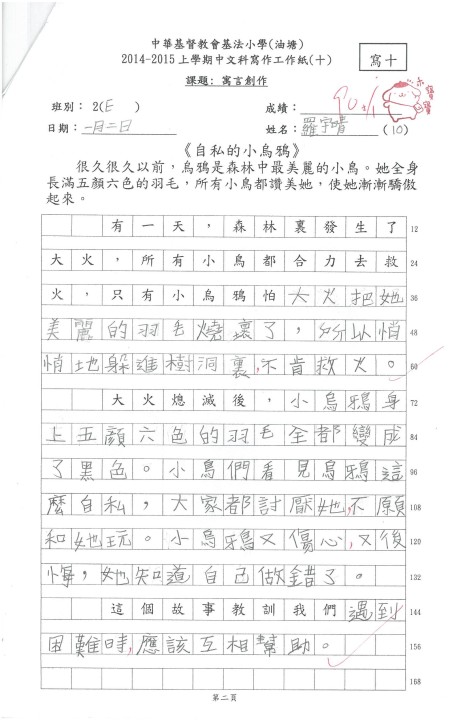 中華基督教會基法小學(油塘)
2014-2015上學期中文科寫作工作紙(十)
寫十
課題: 寓言創作
班別: 2(E)
成績:
日期: 一月二日
姓名: 羅宇晴 (10)
《自私的小烏鴉》
很久很久以前，烏鴉是森林中最美麗的小鳥。她全身
長滿五顏六色的羽毛，所有小鳥都讚美她，使她漸漸驕傲
起來。
有一天，森林裏發生了 12
大火，所有小鳥都合力去救 24
火，只有小烏鴉怕大火把她 36
美麗的羽毛燒壞了，所以悄 48
悄地躲進樹洞裏,不肯救火。 60
大火熄滅後，小烏鴉身 72
上五顏六色的羽毛全都變成 84
了黑色。小鳥們看見烏鴉這 96
麼自私，大家都討厭她,不願 108
和她玩。小烏鴉又傷心,又後 120
悔，她知道自己做錯了。 132
這個故事教訓我們遇到 144
困難時,應該互相幫助。 156
168
第二頁